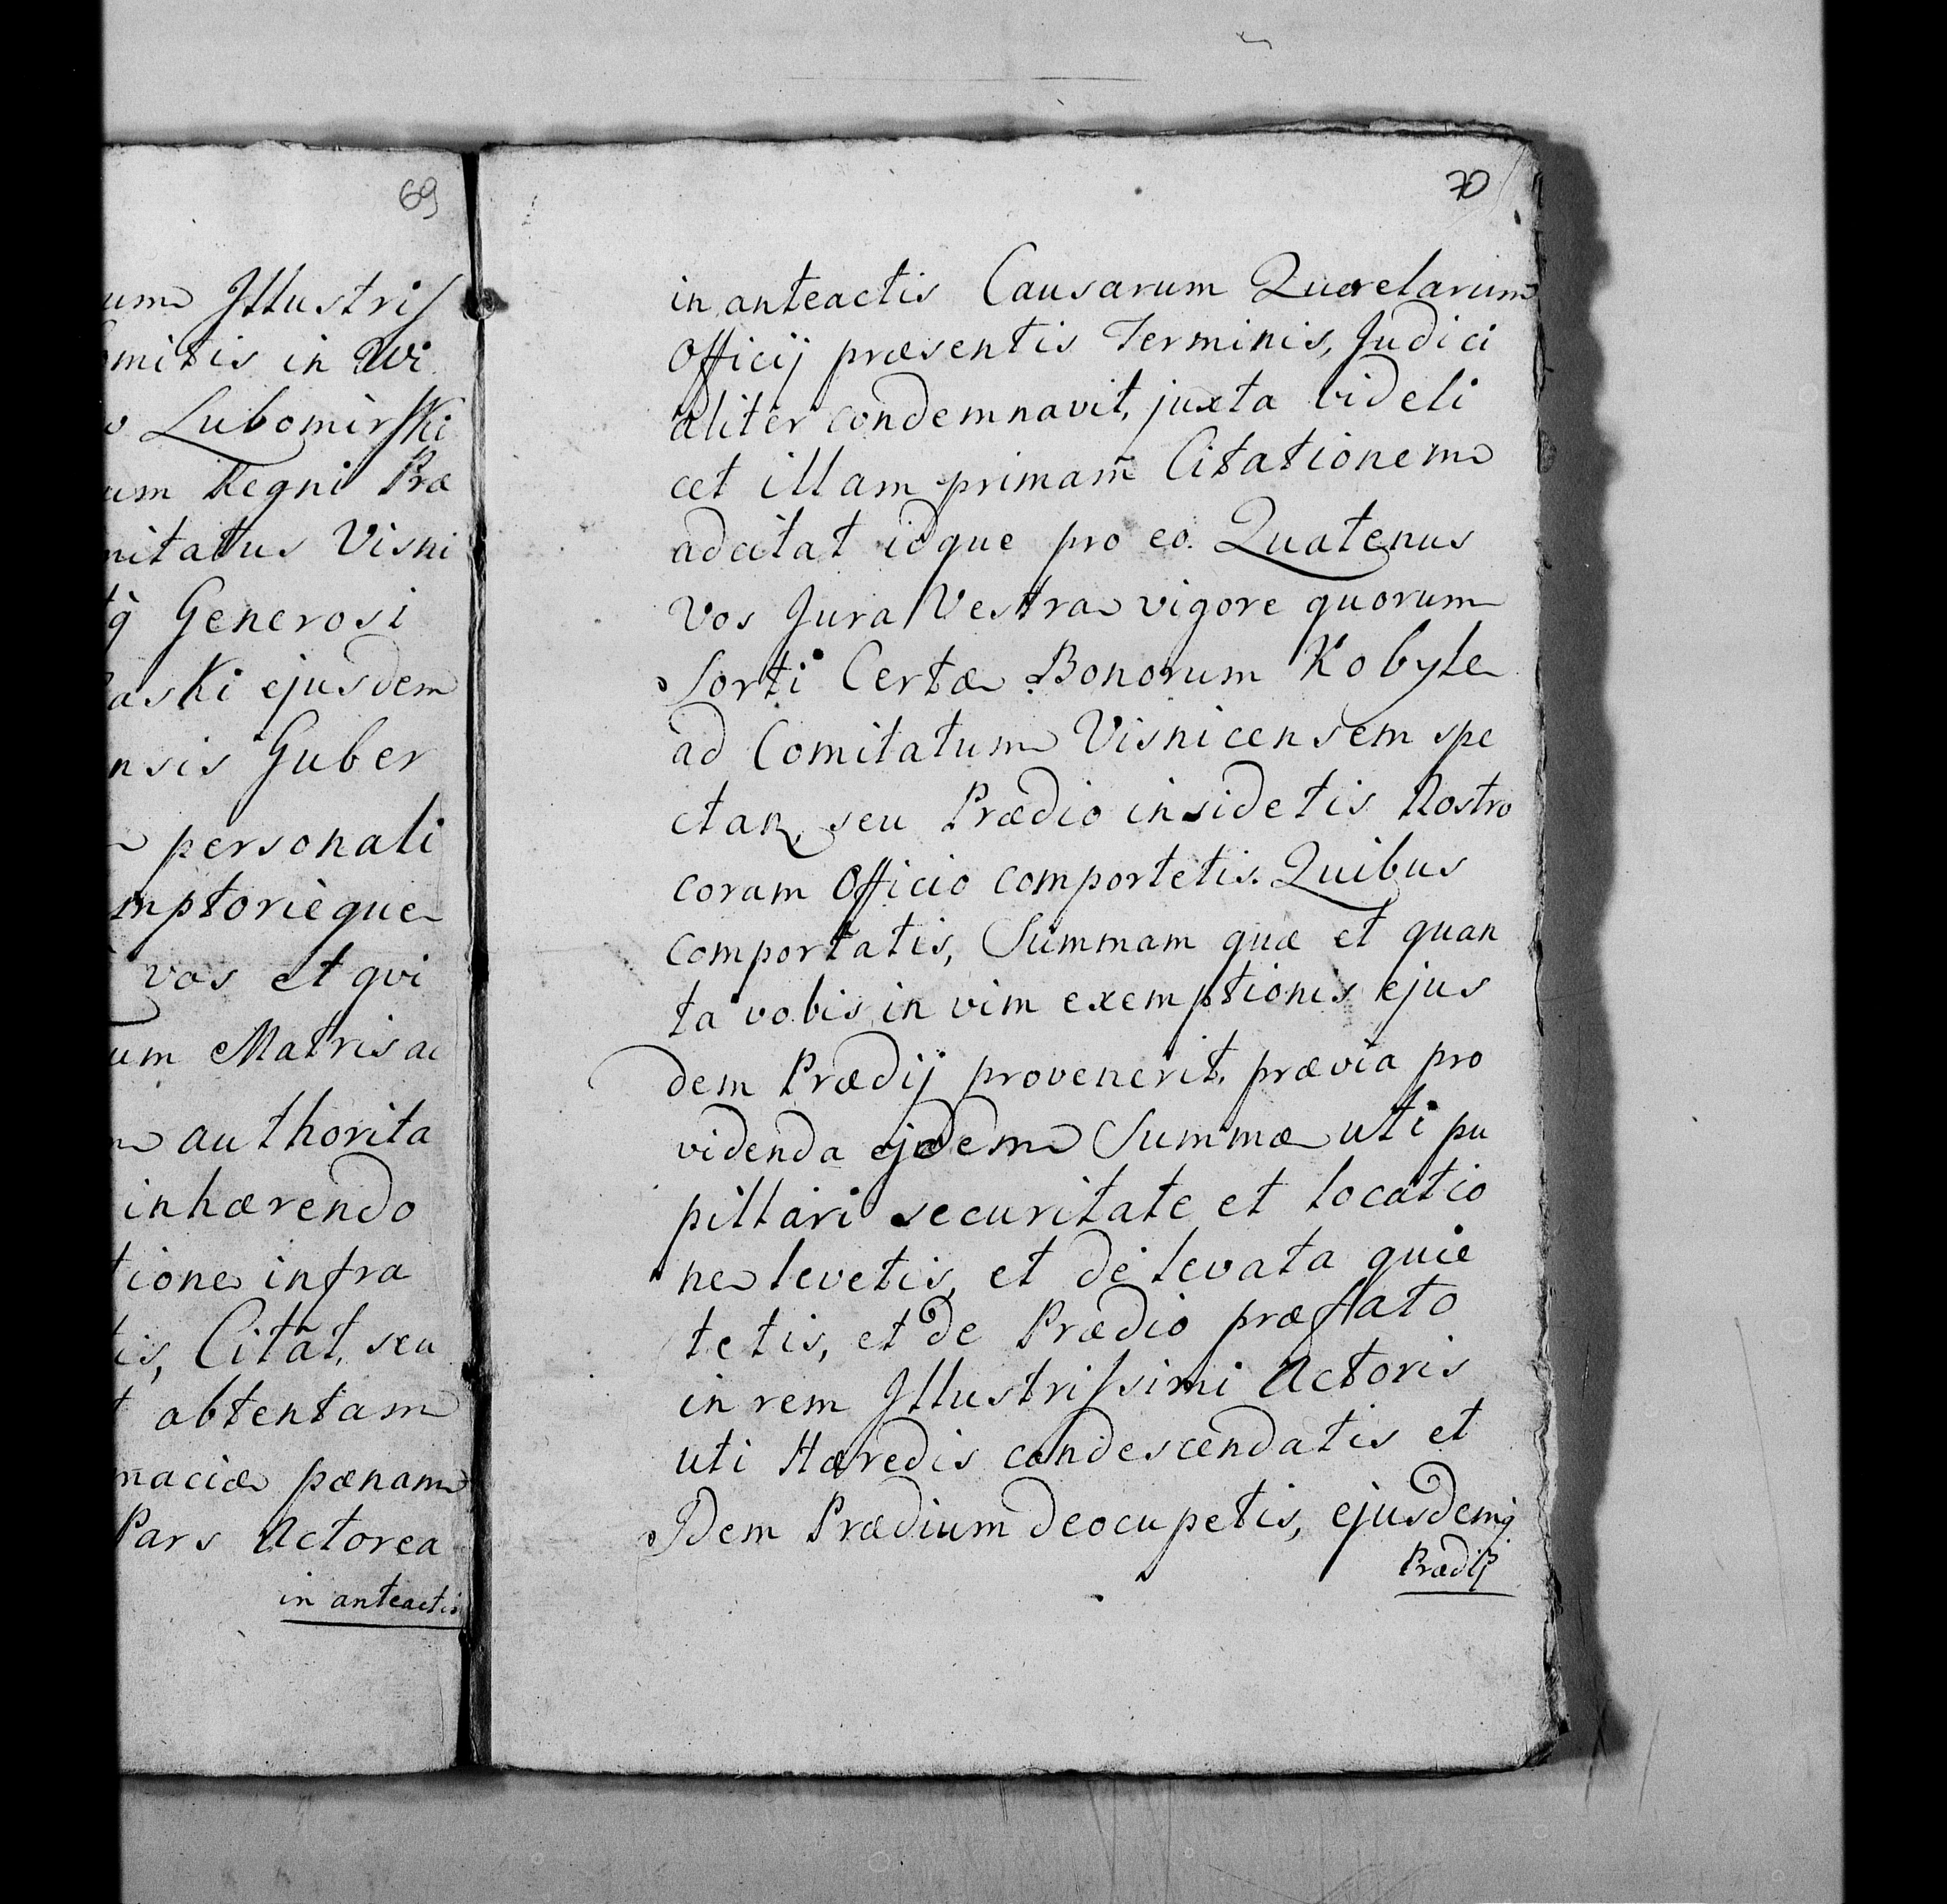 69
um Illustris
mitis in Wi
Lubomirski
um Regni Præ
mitatus Visni
Generosi
aski ejusdem
nsis Guber
personali
mptorièque
vos et qvi
um Matris ac
authorita
inhærendo
tione infra
tis, Citat, seu
obtentam
maciæ pænam
Pars Actorea
in anteactis
70
in anteactis Causarum Querelarum
Officij præsentis Terminis, Judici
aliter condemnavit, juxta videli
cet illam primam Citationem
adcitat idque pro eo. Quatenus
Vos Jura Vestra vigore quorum
Sorti Certæ Bonorum Kobyle
ad Comitatum Visnicensem spe
ctan, seu Prædio insidetis Nostro
coram Officio comportetis. Quibus
comportatis, Summam quæ et quan
ta vobis in vim exemptionis ejus
dem Prædij provenerit, prævia pro
videnda ejdem Summæ uti pu
pillari securitate et locatio
ne levetis, et de levata quie
tetis, et de Prædio præfato
in rem Illustrissimi Actoris
uti Hæredis condescendatis et
Idem Prædium deocupetis, ejusdemq
Prædij